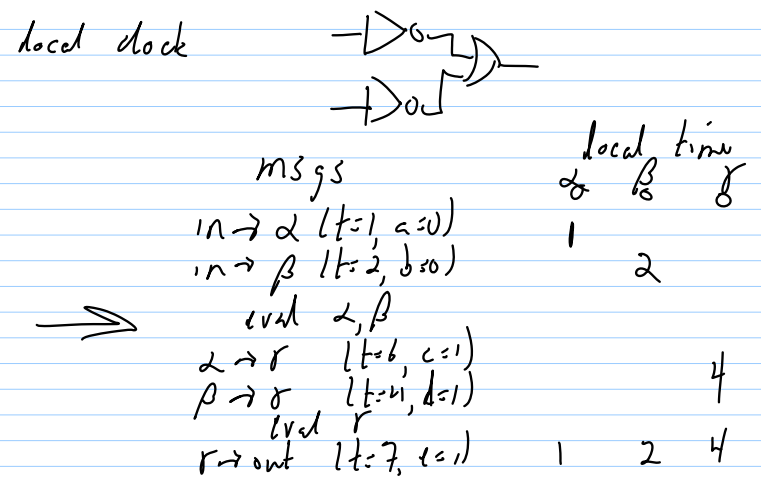 local clock
local time
msgs α β γ
0 0 0
in → α (t=1, a=0) 1
in → β (t=2, b=0) 2
eval α, β
α → γ (t=6, c=1)
β → γ (t=4, d=1) 4
eval γ
γ → out (t=7, e=1) 1 2 4